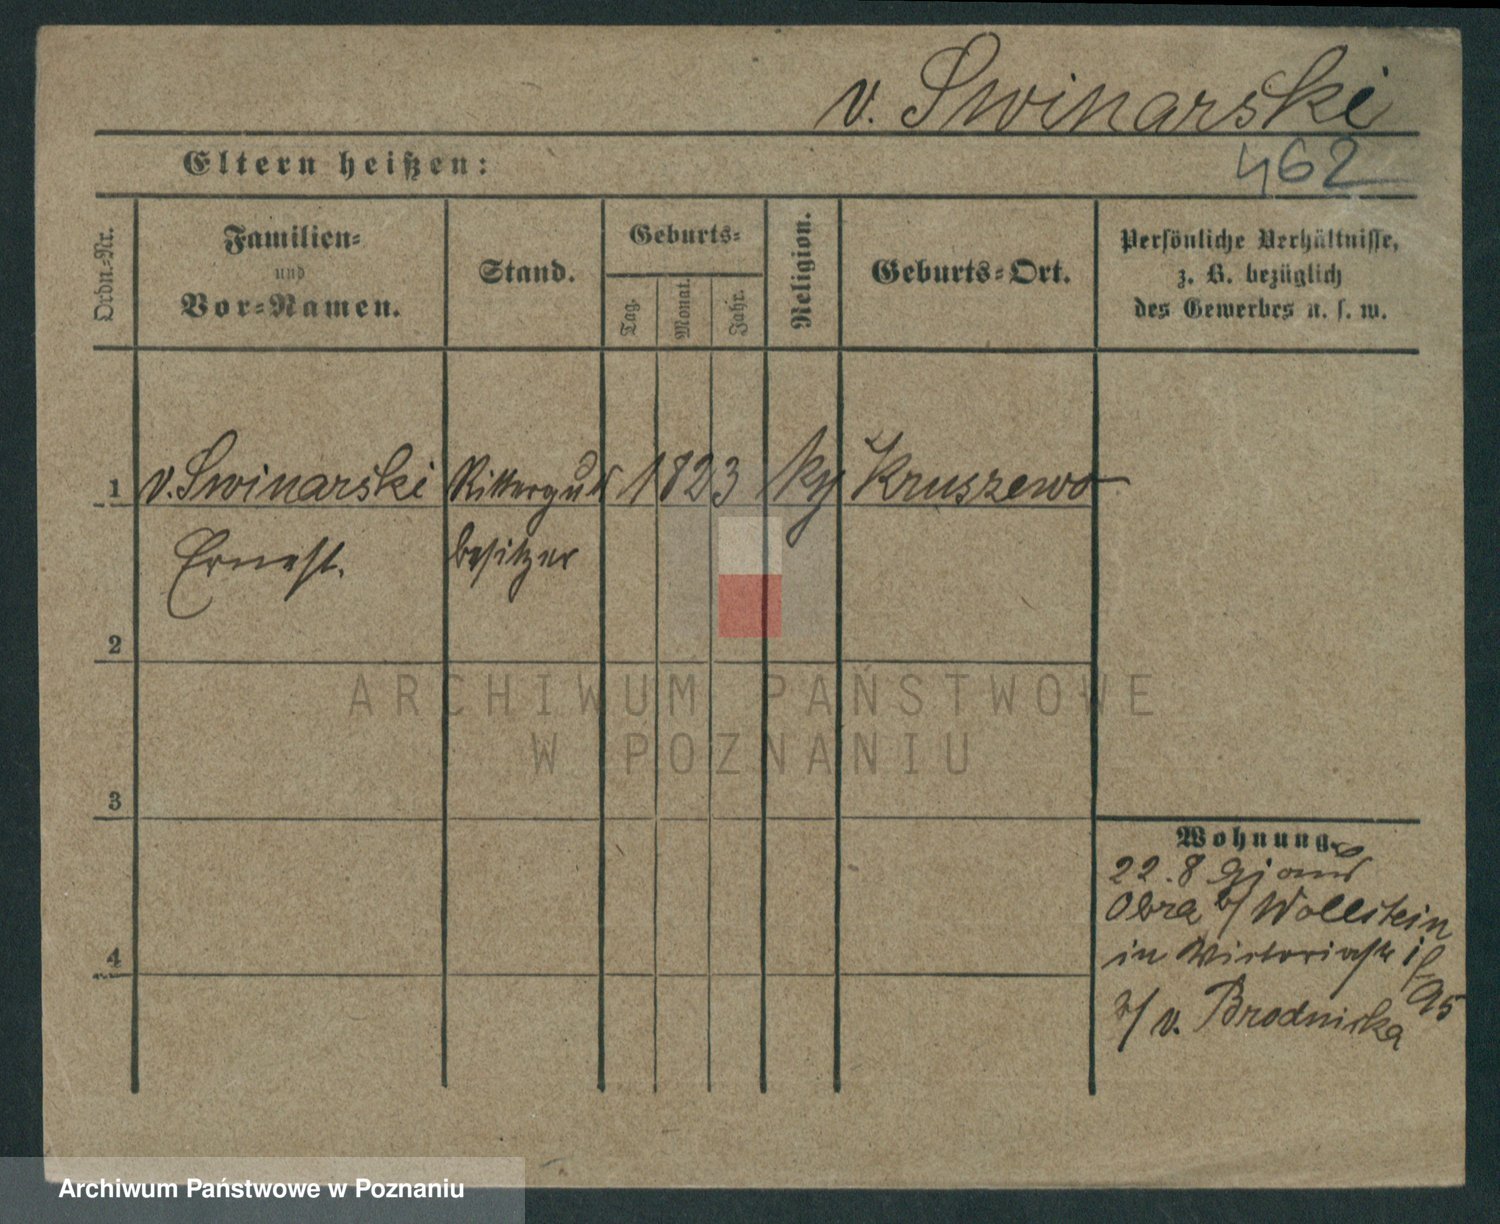 v. Swinarski
462
Eltern heißen:
Ordn-Nr.
Familien-
und
Vor-Namen.
Stand.
Geburts-
Tag.
Monat.
Jahr.
Religion.
Geburts-Ort.
Persönliche Verhältnisse,
z. B. bezüglich
des Gewerbes u. s. w.
1 v. Swinarski Ritterguts 1823 Kruszewo
Ernest. besitzer
2
ARCHIWUM PAŃSTWOWE
W POZNANIU
3
Wohnung.
22.8
Obra b/ Wollstein
4
in
95
b/ v. Brodnicka
Archiwum Państwowe w Poznaniu